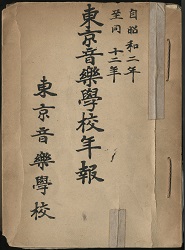 自昭和二年
至同 十二年
東京音樂學校年報
東京音樂學校